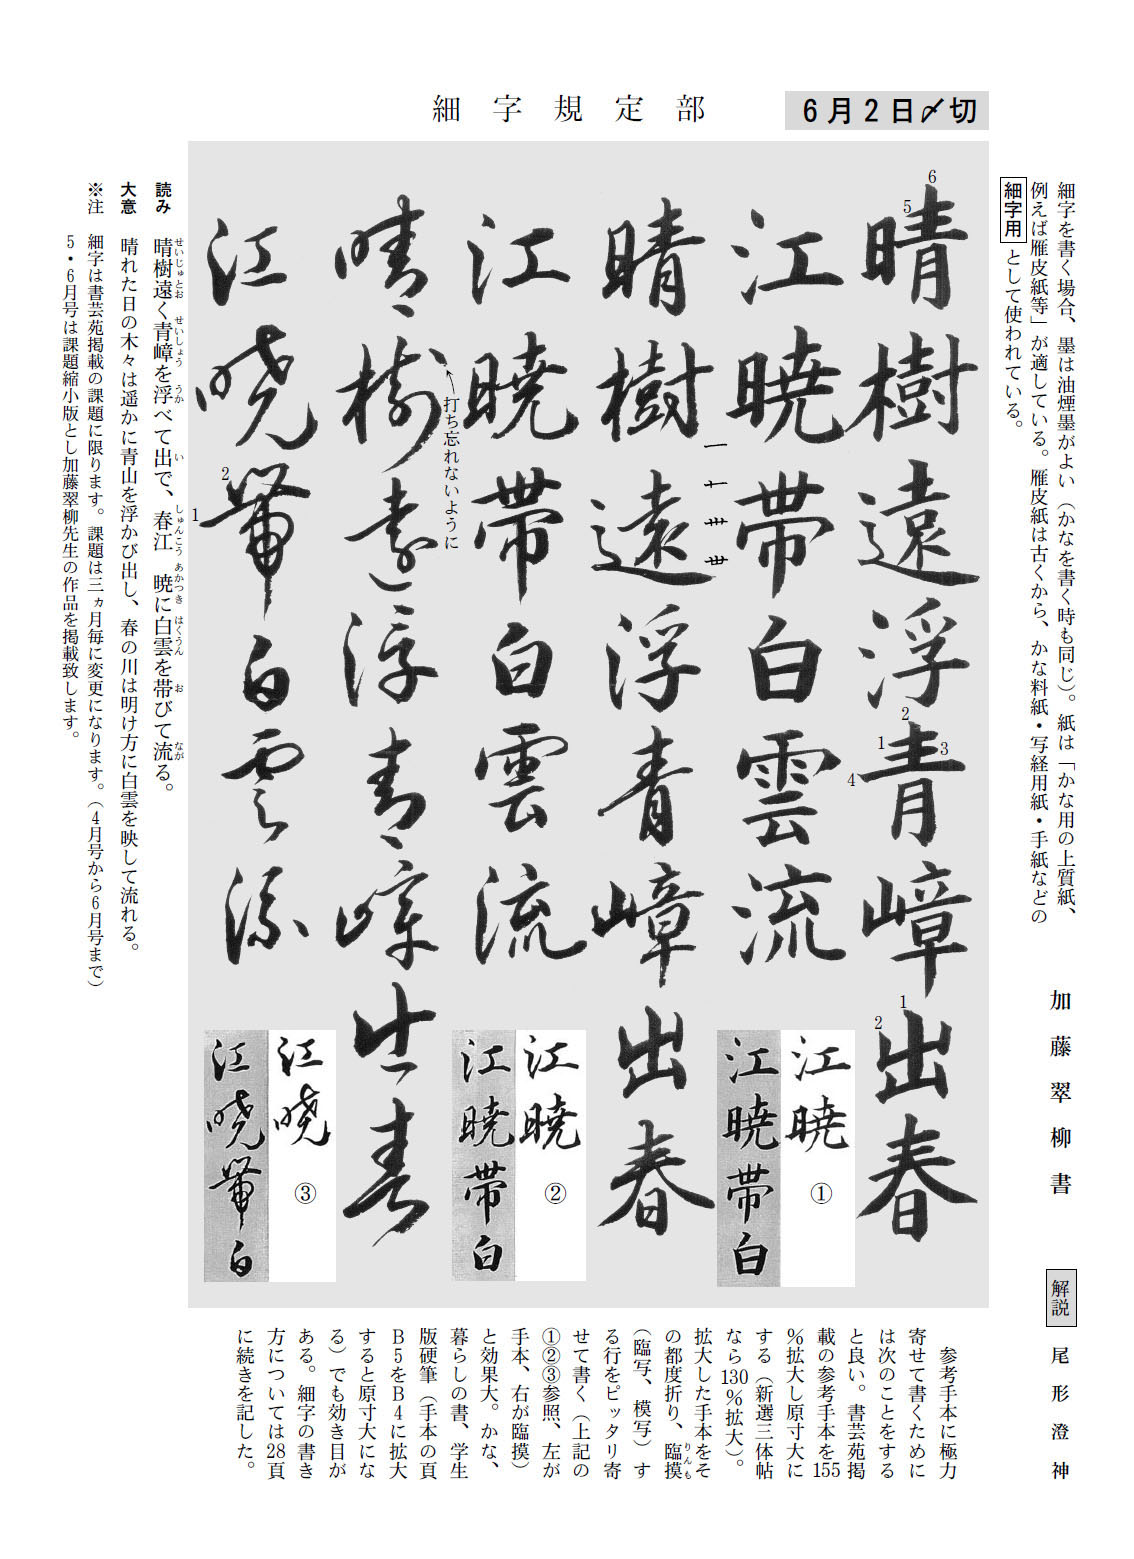 細字規定部
6月2日〆切
細字を書く場合、墨は油煙墨がよい（かなを書く時も同じ）。紙は「かな用の上質紙、
例えば雁皮紙等」が適している。雁皮紙は古くから、かな料紙・写経用紙・手紙などの
細字用として使われている。
加藤翠柳書
解説 尾形澄神
晴樹遠浮青嶂出春
江暁帯白雲流
晴樹遠浮青嶂出春
江暁帯白雲流
晴樹遠浮青嶂出春
江暁帯白雲流
6
5
2
1
3
4
1
2
一 十 卅 丗
打ち忘れないように
2
1
江暁
①
江暁帯白
江暁
②
江暁帯白
江暁
③
江暁帯白
読み 晴樹遠く青嶂を浮べて出で、春江 暁に白雲を帯びて流る。
せいじゅとお せいしょう うか い しゅんこう あかつき はくうん お なが
大意 晴れた日の木々は遥かに青山を浮かび出し、春の川は明け方に白雲を映して流れる。
※注 細字は書芸苑掲載の課題に限ります。課題は三ヵ月毎に変更になります。（4月号から6月号まで）
5・6月号は課題縮小版とし加藤翠柳先生の作品を掲載致します。
参考手本に極力
寄せて書くために
は次のことをする
と良い。書芸苑掲
載の参考手本を155
％拡大し原寸大に
する（新選三体帖
なら130％拡大）。
拡大した手本をそ
の都度折り、臨摸
りんも
（臨写、模写）す
る行をピッタリ寄
せて書く（上記の
①②③参照、左が
手本、右が臨摸）
と効果大。かな、
暮らしの書、学生
版硬筆（手本の頁
B5をB4に拡大
すると原寸大にな
る）でも効き目が
ある。細字の書き
方については28頁
に続きを記した。